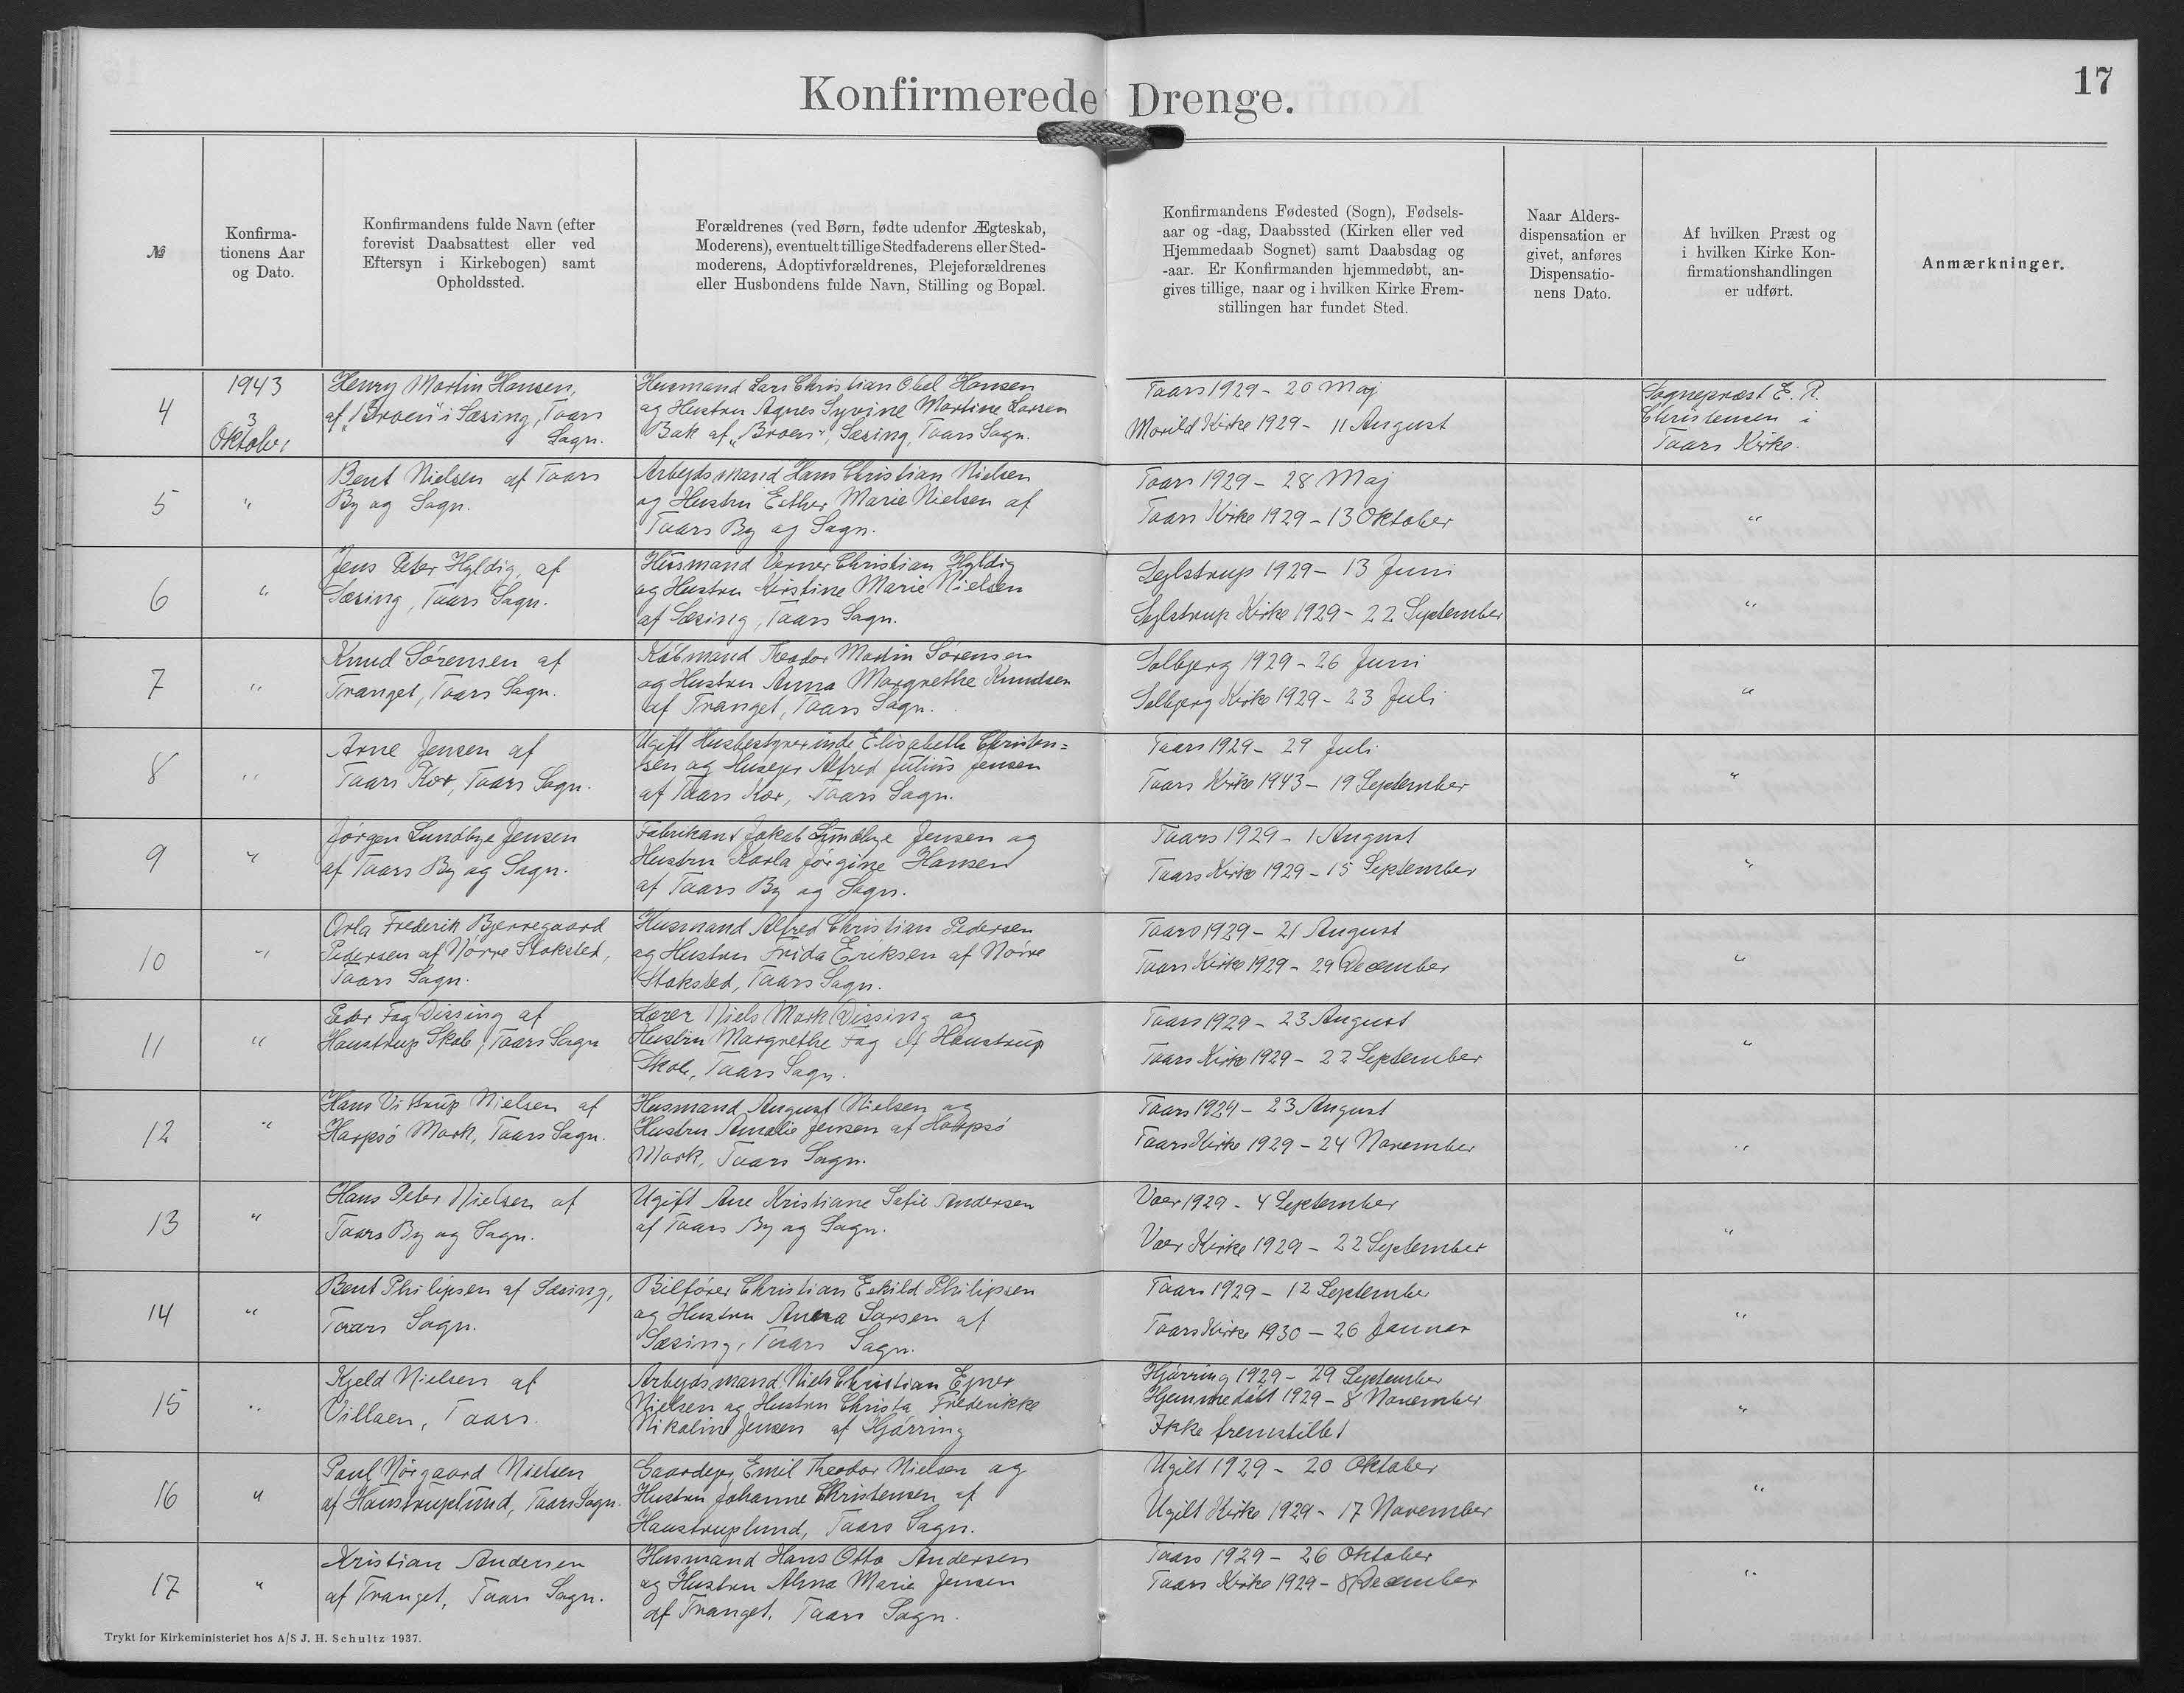 Konfirmerede Drenge.
17
№
Konfirma-
tionens Aar
og Dato.
Konfirmandens fulde Navn (efter
forevist Daabsattest eller ved
Eftersyn i Kirkebogen) samt
Opholdssted.
Forældrenes (ved Børn, fødte udenfor Ægteskab,
Moderens), eventuelt tillige Stedfaderens eller Sted-
moderens, Adoptivforældrenes, Plejeforældrenes
eller Husbondens fulde Navn, Stilling og Bopæl.
Konfirmandens Fødested (Sogn), Fødsels-
aar og -dag, Daabssted (Kirken eller ved
Hjemmedaab Sognet) samt Daabsdag og
-aar. Er Konfirmanden hjemmedøbt, an-
gives tillige, naar og i hvilken Kirke Frem-
stillingen har fundet Sted.
Naar Alders-
dispensation er
givet, anføres
Dispensatio-
nens Dato.
Af hvilken Præst og
i hvilken Kirke Kon-
firmationshandlingen
er udført.
Anmærkninger.
4
1943
3
Oktober
Henry Martin Hansen,
af "Broen" i Sæsing, Taars
Sogn.
Husmand Lars Christian Obel Hansen
og Hustru Agnes Syvine Martine Larsen
Bak af "Broen", Sæsing, Taars Sogn.
Taars 1929 - 20 Maj
Morild Kirke 1929 - 11 August
Sognepræst E. R.
Christensen i
Taars Kirke.
5
"
Bent Nielsen af Taars
By og Sogn.
Arbejdsmand Hans Christian Nielsen
og Hustru Esther Marie Nielsen af
Taars By og Sogn.
Taars 1929 - 28 Maj
Taars Kirke 1929 - 13 Oktober
"
6
"
Jens Peter Hyldig, af
Sæsing, Taars Sogn.
Husmand Verner Christian Hyldig
og Hustru Kirstine Marie Nielsen
af Sæsing, Taars Sogn.
Sejlstrup 1929 - 13 Juni
Sejlstrup Kirke 1929 - 22 September
"
7
"
Knud Sörensen af
Tranget, Taars Sogn.
Købmand Theodor Martin Sörensen
og Hustru Anna Margrethe Knudsen
af Tranget, Taars Sogn.
Solbjerg 1929 - 26 Juni
Solbjerg Kirke 1929 - 23 Juli
"
8
"
Arne Jensen af
Taars Kær, Taars Sogn.
Ugift Husbestyrerinde Elisabeth Christen=
sen og Husejer Alfred Julius Jensen
af Taars Kær, Taars Sogn.
Taars 1929 - 29 Juli
Taars Kirke 1943 - 19 September
"
9
"
Jörgen Lundbye Jensen
af Taars By og Sogn.
Fabrikant Jakob Lundbye Jensen og
Hustru Karla Jörgine Hansen
af Taars By og Sogn.
Taars 1929 - 1 August
Taars Kirke 1929 - 15 September
"
10
"
Orla Frederik Bjerregaard
Pedersen af Nörre Stoksted,
Taars Sogn.
Husmand Alfred Christian Pedersen
og Hustru Frida Eriksen af Nörre
Stoksted, Taars Sogn.
Taars 1929 - 21 August
Taars Kirke 1929 - 29 December
"
11
"
Fog Dissing af
Haustrup Skole, Taars Sogn
Lærer Niels Mark Dissing og
Hustru Margrethe Fog af Haustrup
Skole, Taars Sogn.
Taars 1929 - 23 August
Taars Kirke 1929 - 22 September
"
12
"
Hans Vittrup Nielsen af
Harpsö Mark, Taars Sogn.
Husmand August Nielsen og
Hustru Amalie Jensen af Harpsö
Mark, Taars Sogn.
Taars 1929 - 23 August
Taars Kirke 1929 - 24 November
"
13
"
Hans Peter Nielsen af
Taars By og Sogn.
Ugift Ane Kristiane Sofie Andersen
af Taars By og Sogn.
Voer 1929 - 4 September
Voer Kirke 1929 - 22 September
"
14
"
Bent Philipsen af Sæsing,
Taars Sogn.
Bilförer Christian Eskild Philipsen
og Hustru Anna Larsen af
Sæsing, Taars Sogn.
Taars 1929 - 12 September
Taars Kirke 1930 - 26 Januar
"
15
"
Kjeld Nielsen af
Villaen, Taars.
Arbejdsmand Niels Christian Ejner
Nielsen og Hustru Christa Frederikke
Nikoline Jensen af Hjörring
Hjörring 1929 - 29 September
Hjemmedöbt 1929 - 8 November
Ikke fremstillet
"
16
"
Poul Nörgaard Nielsen
af Haustruplund, Taars Sogn.
Gaardejer Emil Theodor Nielsen og
Hustru Johanne Christensen af
Haustruplund, Taars Sogn.
Ugilt 1929 - 20 Oktober
Ugilt Kirke 1929 - 17 November
"
17
"
Kristian Andersen
af Tranget, Taars Sogn.
Husmand Hans Otto Andersen
og Hustru Alma Marie Jensen
af Tranget, Taars Sogn.
Taars 1929 - 26 Oktober
Taars Kirke 1929 - 8 December
"
Trykt for Kirkeministeriet hos A/S J. H. Schultz 1937.